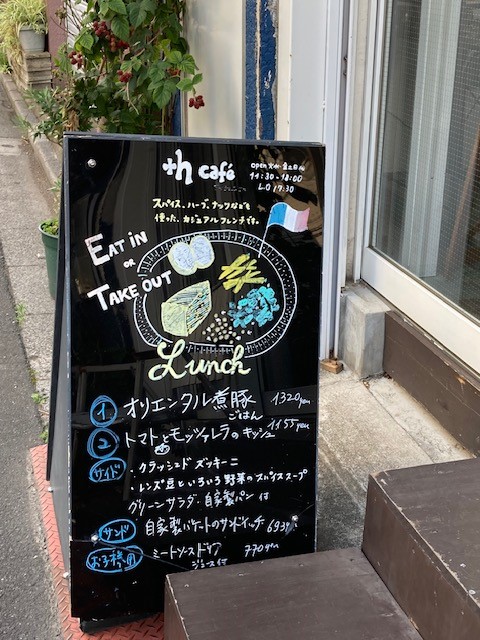 th café
open 火水 金土日
11:30-18:00
LO 17:30
スパイス、ハーブ、ナッツなどを
使った、カジュアルフレンチです。
EAT IN
OR
TAKE OUT
Lunch
① オリエンタル煮豚 ごはん 1320yen
② トマトとモッツァレラのキッシュ 1155yen
サイド ・クラッシュド ズッキーニ
・レンズ豆といろいろ野菜のスパイススープ
グリーンサラダ・自家製パン 付
サンド 自家製バゲートのサンドイッチ 693yen
お子様用 ミートソースドリア 770yen
ジュース付